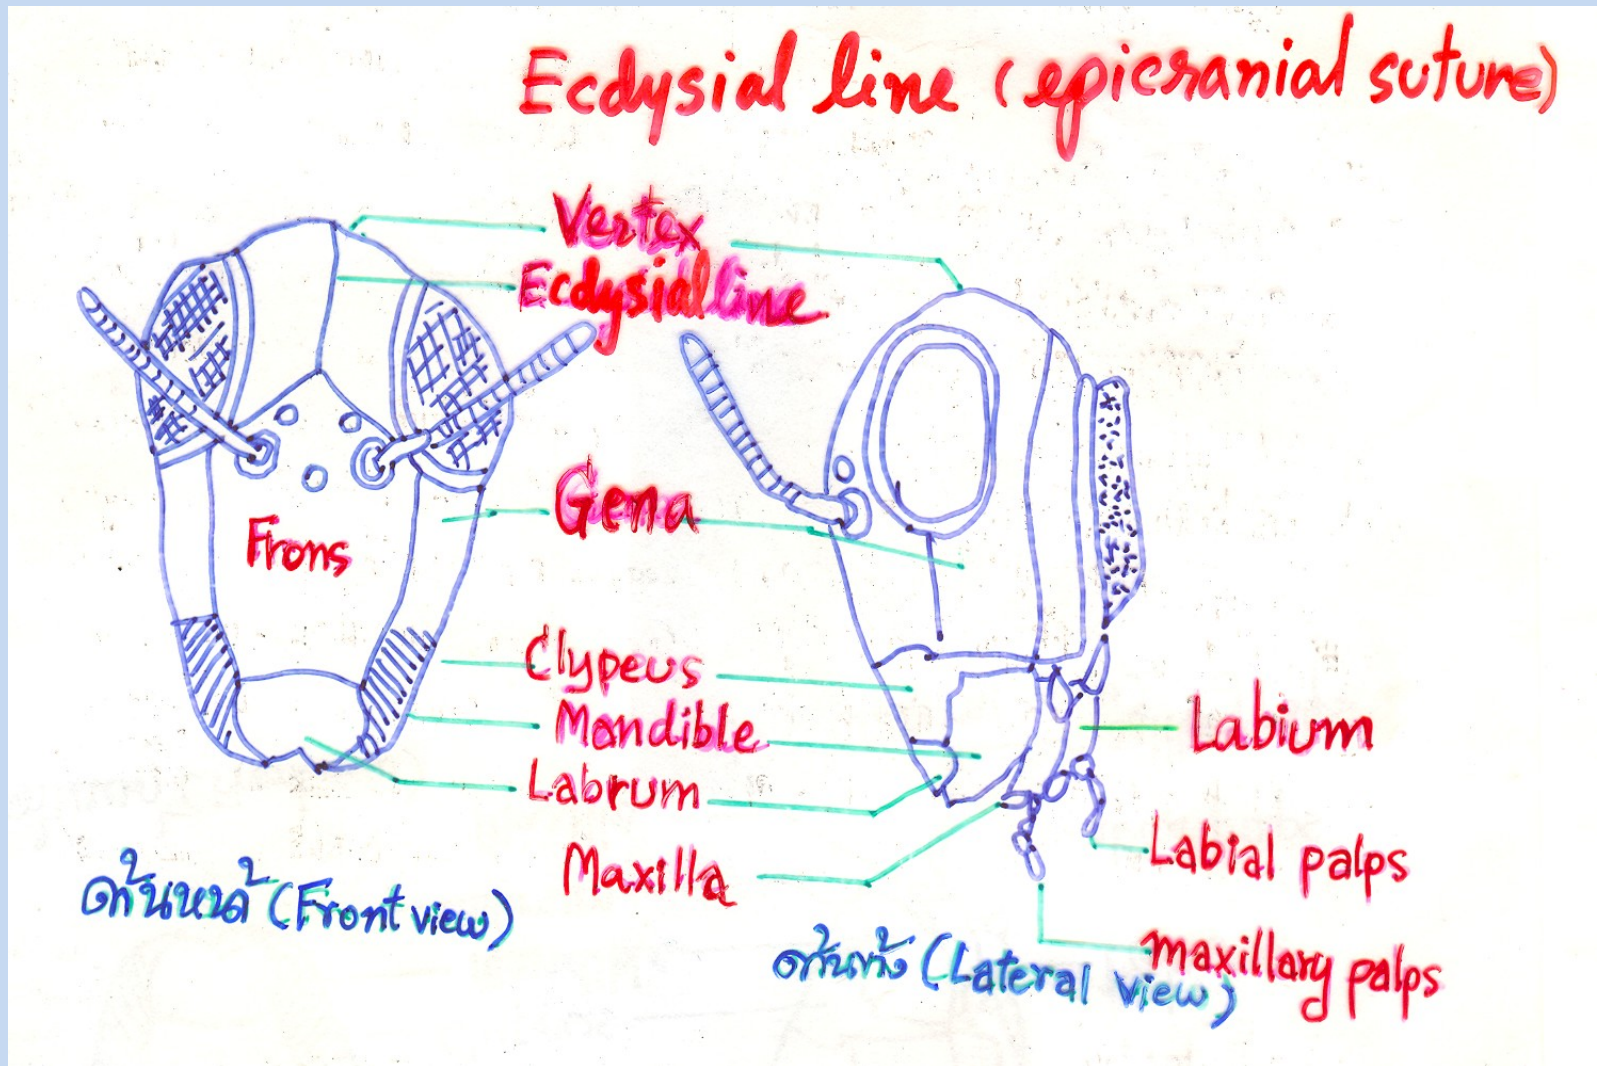 Ecdysial line (epicranial suture)
Vertex
Ecdysial line
Gena
Frons
Clypeus
Mandible
Labrum
Maxilla
Labium
Labial palps
maxillary palps
ด้านหน้า (Front view)
ด้านข้าง (Lateral view)